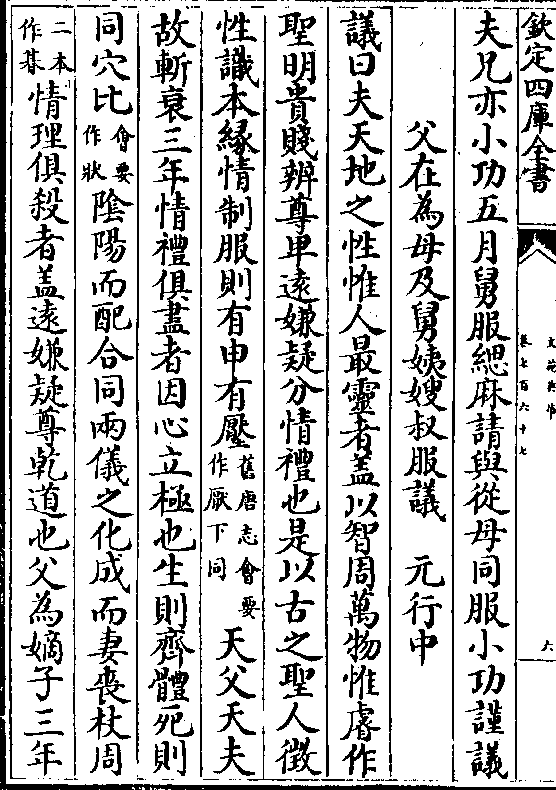 欽定四庫全書
文苑英華
卷七百六十七
六
夫兄亦小功五月舅服緦麻請與從母同服小功謹議
父在為母及舅姨嫂叔服議　元行中
議曰夫天地之性惟人最靈者盖以智周萬物惟睿作
聖明貴賤辨尊卑遠嫌疑分情禮也是以古之聖人徴
性識本緣情制服則有申有壓舊唐志會要作厭下同天父天夫
故斬衰三年情禮俱盡者因心立極也生則齊體死則
同穴比會要作狀陰陽而配合同兩儀之化成而妻喪杖周
二本作朞情理俱殺者盖遠嫌疑尊乾道也父為嫡子三年